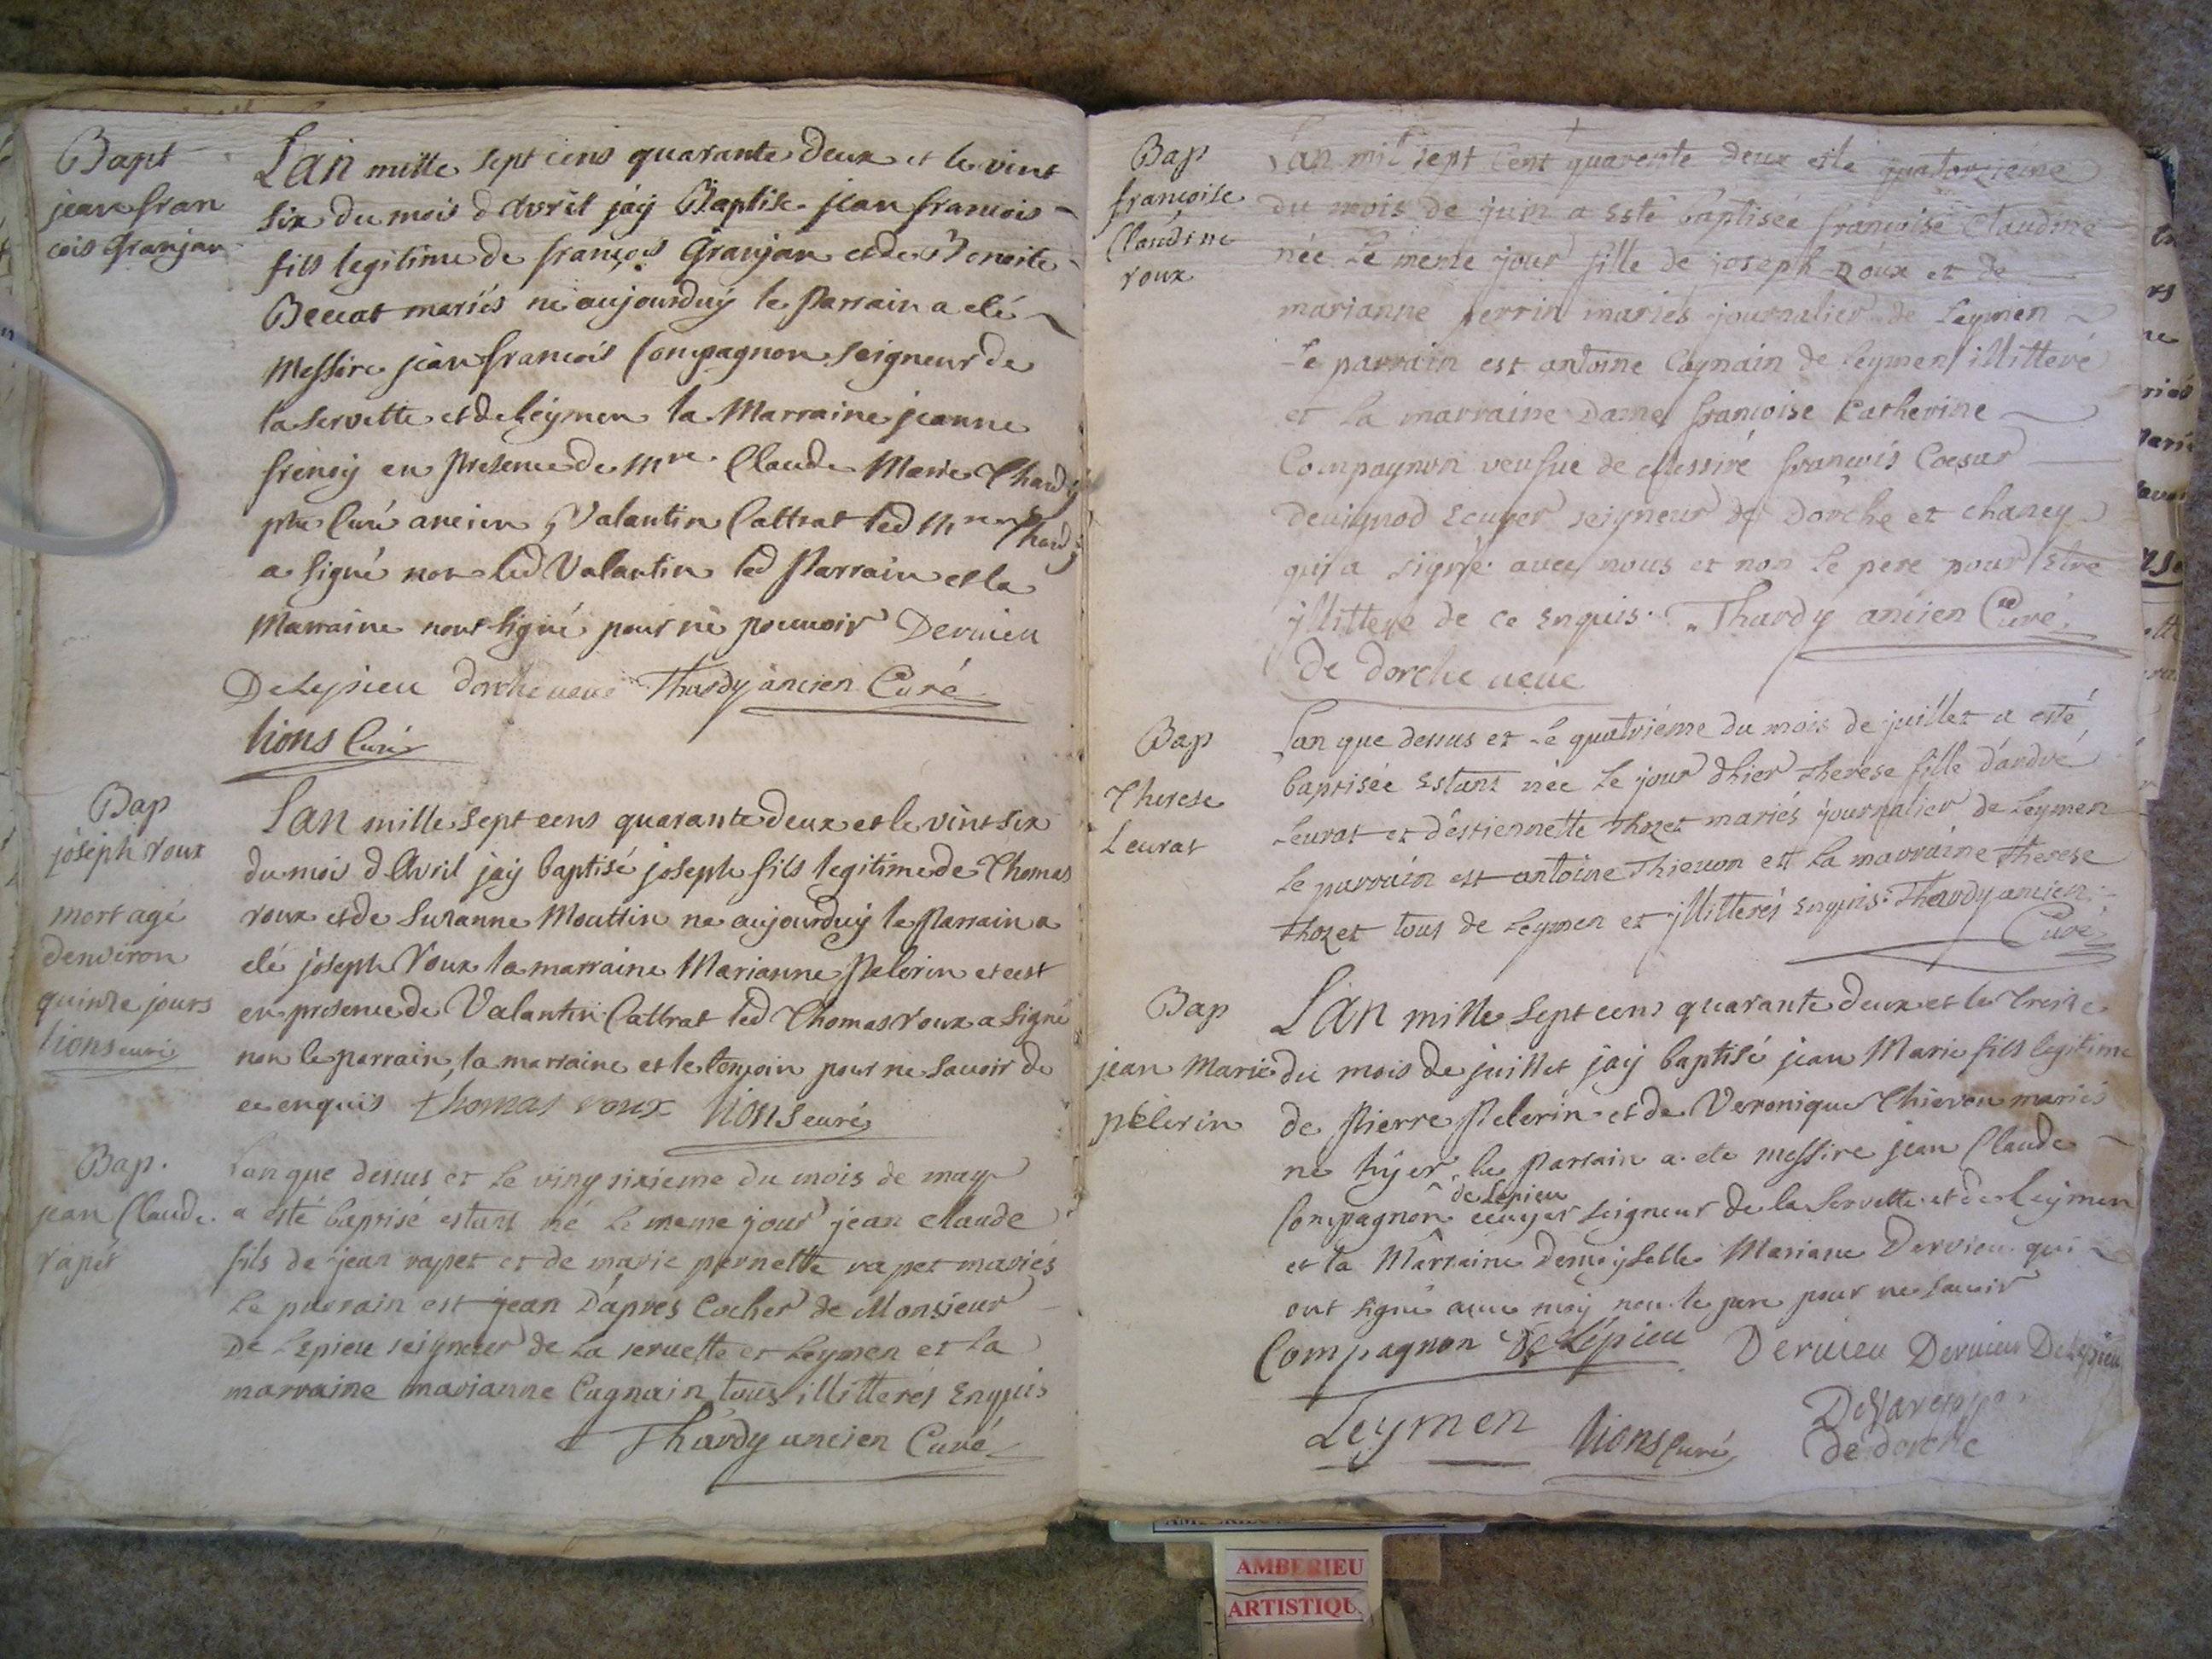 Bapt
jean fran
cois Granjan
Lan mille sept cens quarante deux et le vint
six du mois d Avril jaÿ Baptisé jean francois
fils legitime de françois Granjan et de Benoite
Beccat mariés né aujourduÿ le Parrain a eté
Messire jean francois Compagnon seigneur de
la servette et de leÿmen la Marraine jeanne
en presence de Mre Claude Marie Thardÿ
ptre Curé ancien, Valantin Cattrat led Mre Thardÿ
a signé non led Valantin led Parrain et la
Marraine nont signé pour ne pouvoir Dervieu
De Lepieu dorche veuve Thardy ancien Curé
lions Curé
Bap
joseph roux
mort agé
denviron
quinze jours
lions curé
Lan mille sept cens quarante deux et le vint six
du mois d Avril jaÿ baptisé joseph fils legitime de Thomas
roux et de Suzanne Mouttin né aujourduÿ le Parrain a
eté joseph Roux la marraine Marianne Pelerin et cest
en presence de Valantin Cattrat led Thomas roux a signé
non le parrain, la marraine et le temoin pour ne savoir de
ce enquis thomas roux lions curé
Bap.
jean Claude
rapet
Lan que dessus et le vingt sixieme du mois de may
a esté baptisé estant né le meme jour jean claude
fils de jean rapet et de marie pernette rapet mariés
Le parrain est jean Daprés Cocher de Monsieur
De Lepieu seigneur de La servette et Leymen et La
marraine marianne Cagnain tous illitterés Enquis
Thardy ancien Curé
Bap
françoise
Claudine
roux
Lan mil sept Cent quarente deux et le quatorzieme
du mois de juin a Esté baptisée françoise Claudine
née Le meme jour fille de joseph Roux et de
marianne perrin mariés journalier de Leymen
Le parrain est antoine Cagnain de Leymen illitteré
et La marraine Dame françoise Catherine
Compagnon veufue de Messire françois Coesar
Deuignod Ecuyer seigneur de Dorche et chaney
qui a signé auec nous et non Le pere pour Etre
jllitteré de ce Enquis. Thardy ancien Curé.
De dorche ueue
Bap
Therese
Leurat
Lan que dessus et Le quatriéme du mois de juillet a esté
baptisée Estant née Le jour dhier therese fille d'andré
Leurat et destiennette thozet mariés journalier de Leymen
Le parrain est antoine Thieuon est La marraine therese
thozet tous de Leymen et jllitterés Enquis. Thardy ancien
Curé
Bap
jean Marie
pelerin
Lan mille sept cens quarante deux et le treize
du mois de juillet jaÿ baptisé jean Marie fils legitime
de Pierre Pelerin et de Veronique Thievon mariés
né hÿer le Parrain a eté messire jean Claude
de Lepieu
Compagnon ecuyer seigneur de la Servette et de Leÿmen
et la Marraine Demoÿselle Mariane Dervieu qui
ont signé avec moÿ non le pere pour ne savoir
Compagnon De Lépieu Dervieu Dervieu De Lepieu
Leymen lions Curé de dorche
AMBERIEU
ARTISTIQU